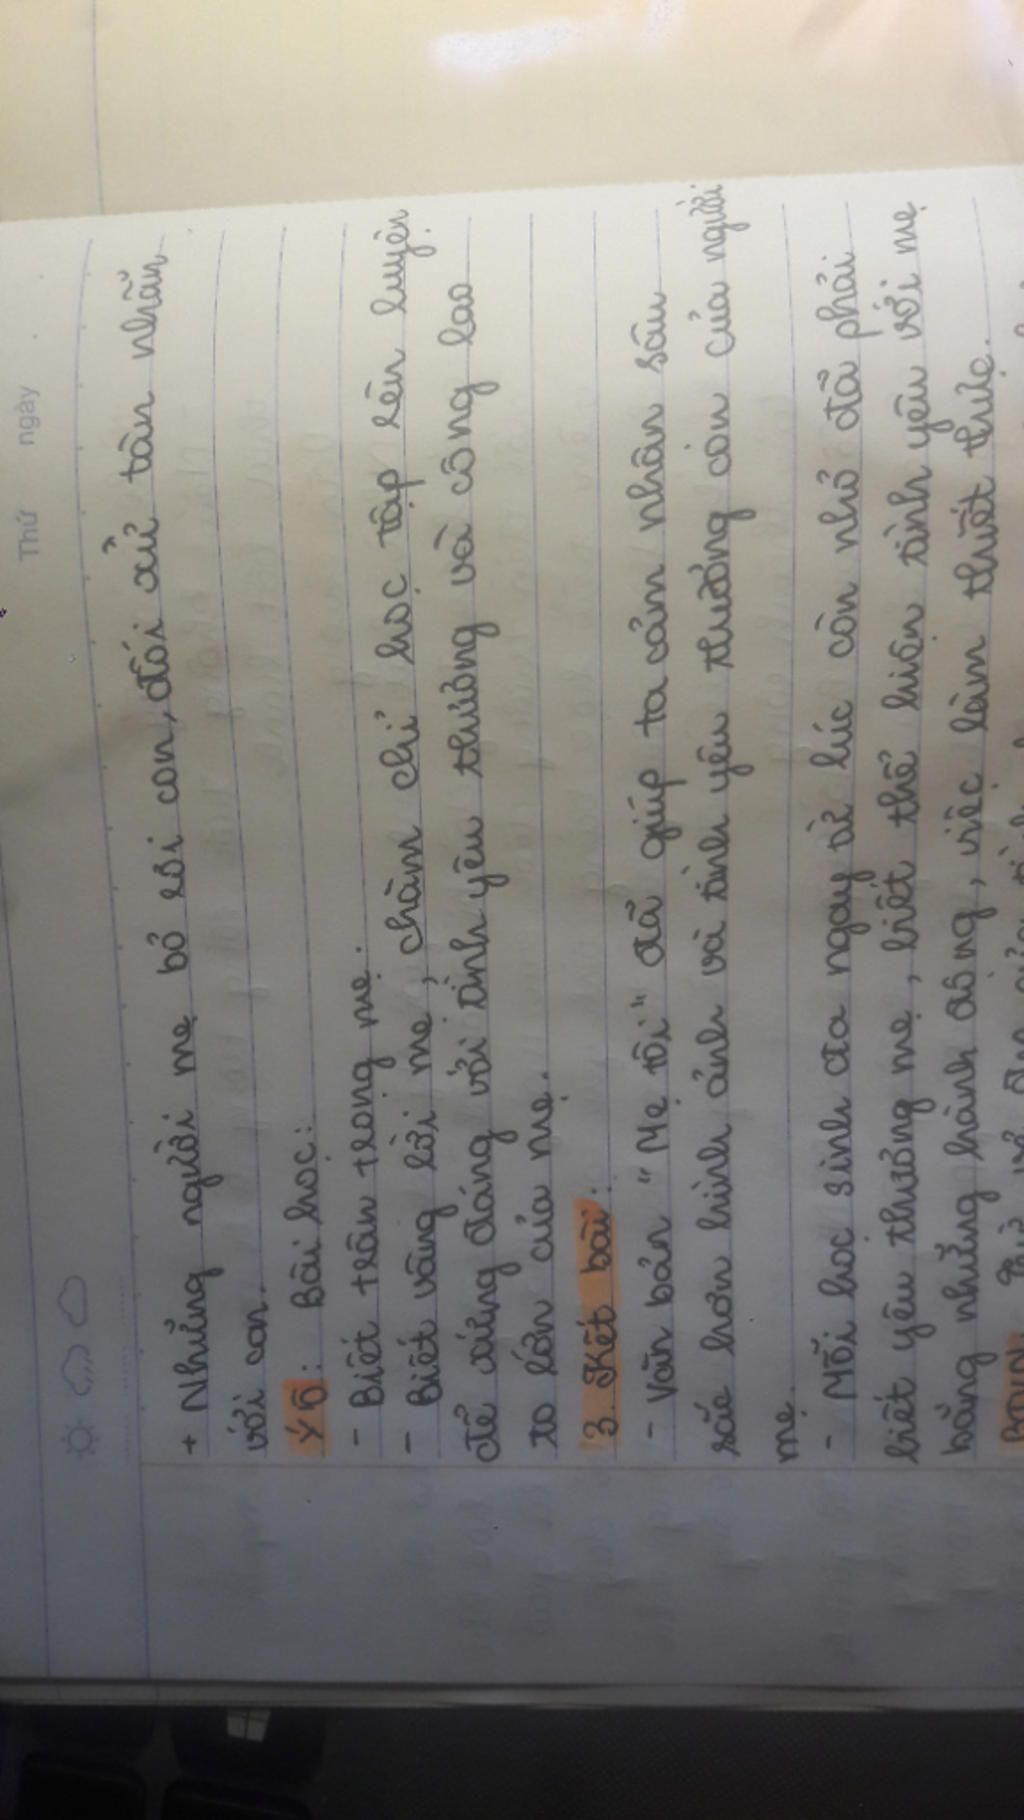 Thứ ngày
+ Những người mẹ bỏ rơi con, đối xử tàn nhẫn
với con.
Ý 5: Bài học:
- Biết trân trọng mẹ.
- Biết vâng lời mẹ, chăm chỉ học tập rèn luyện
để xứng đáng với tình yêu thương và công lao
to lớn của mẹ.
3. Kết bài:
- Văn bản "Mẹ tôi" đã giúp ta cảm nhận sâu
sắc hơn hình ảnh và tình yêu thương con của người
mẹ.
- Mỗi học sinh đa ngay từ lúc còn nhỏ đã phải
biết yêu thương mẹ, biết thể hiện tình yêu với mẹ
bằng những hành động, việc làm thiết thực.